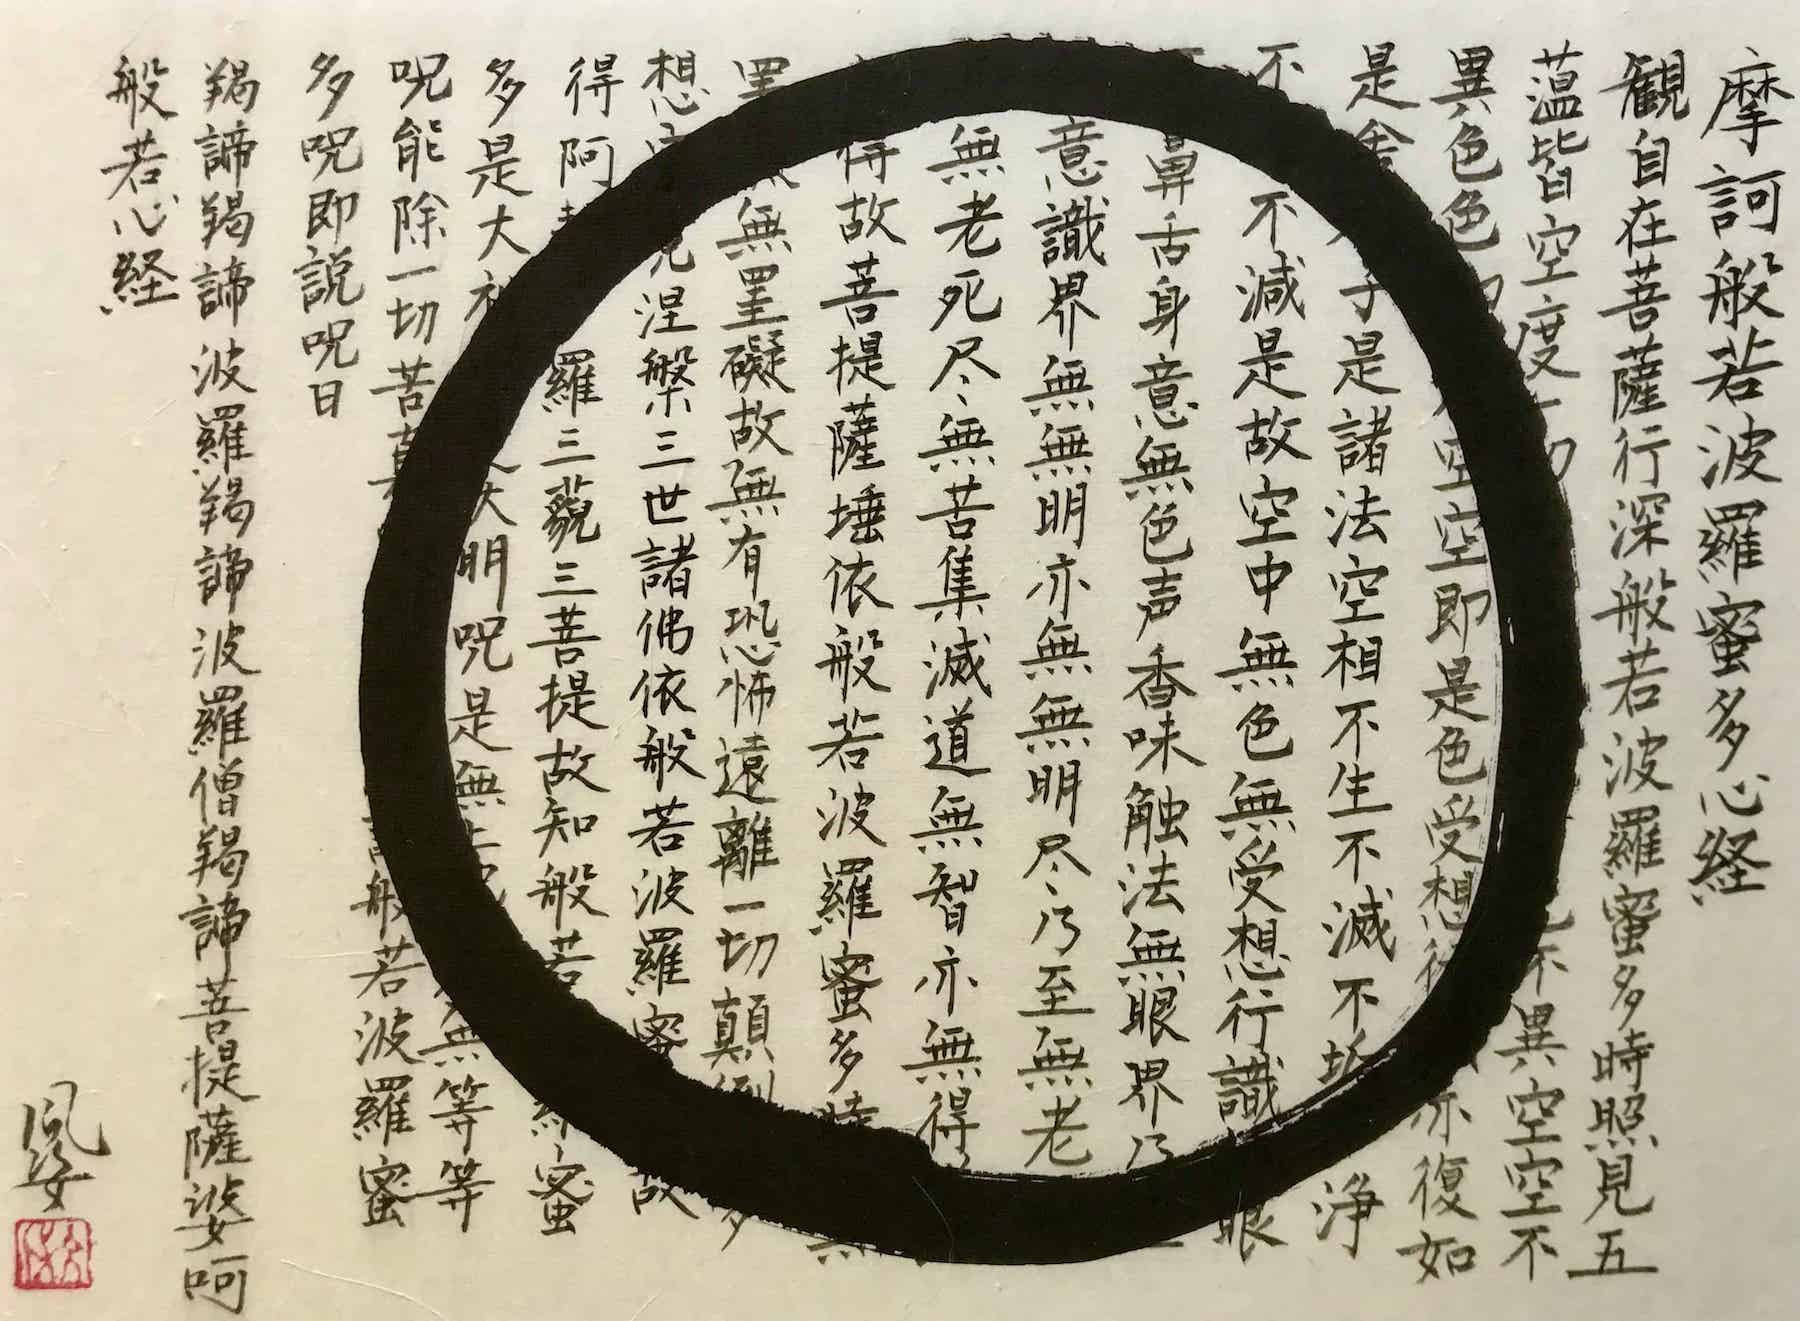 摩訶般若波羅蜜多心経
観自在菩薩行深般若波羅蜜多時照見五
蘊皆空度一切不異空空不
異色色空空即是色受想行亦復如
是舎子是諸法空相不生不滅不垢浄
不不減是故空中無色無受想行識眼
鼻舌身意無色声香味触法無眼界乃
意識界無無明亦無無明尽乃至無老
無老死尽無苦集滅道無智亦無得
得故菩提薩埵依般若波羅蜜多
罣無罣礙故無有恐怖遠離一切顛倒
想涅槃三世諸佛依般若波羅蜜故
得阿羅三藐三菩提故知般若蜜
多是大大明呪是無上無等等
呪能除一切苦般若波羅蜜
多呪即説呪曰
羯諦羯諦波羅羯諦波羅僧羯諦菩提薩婆呵
般若心経